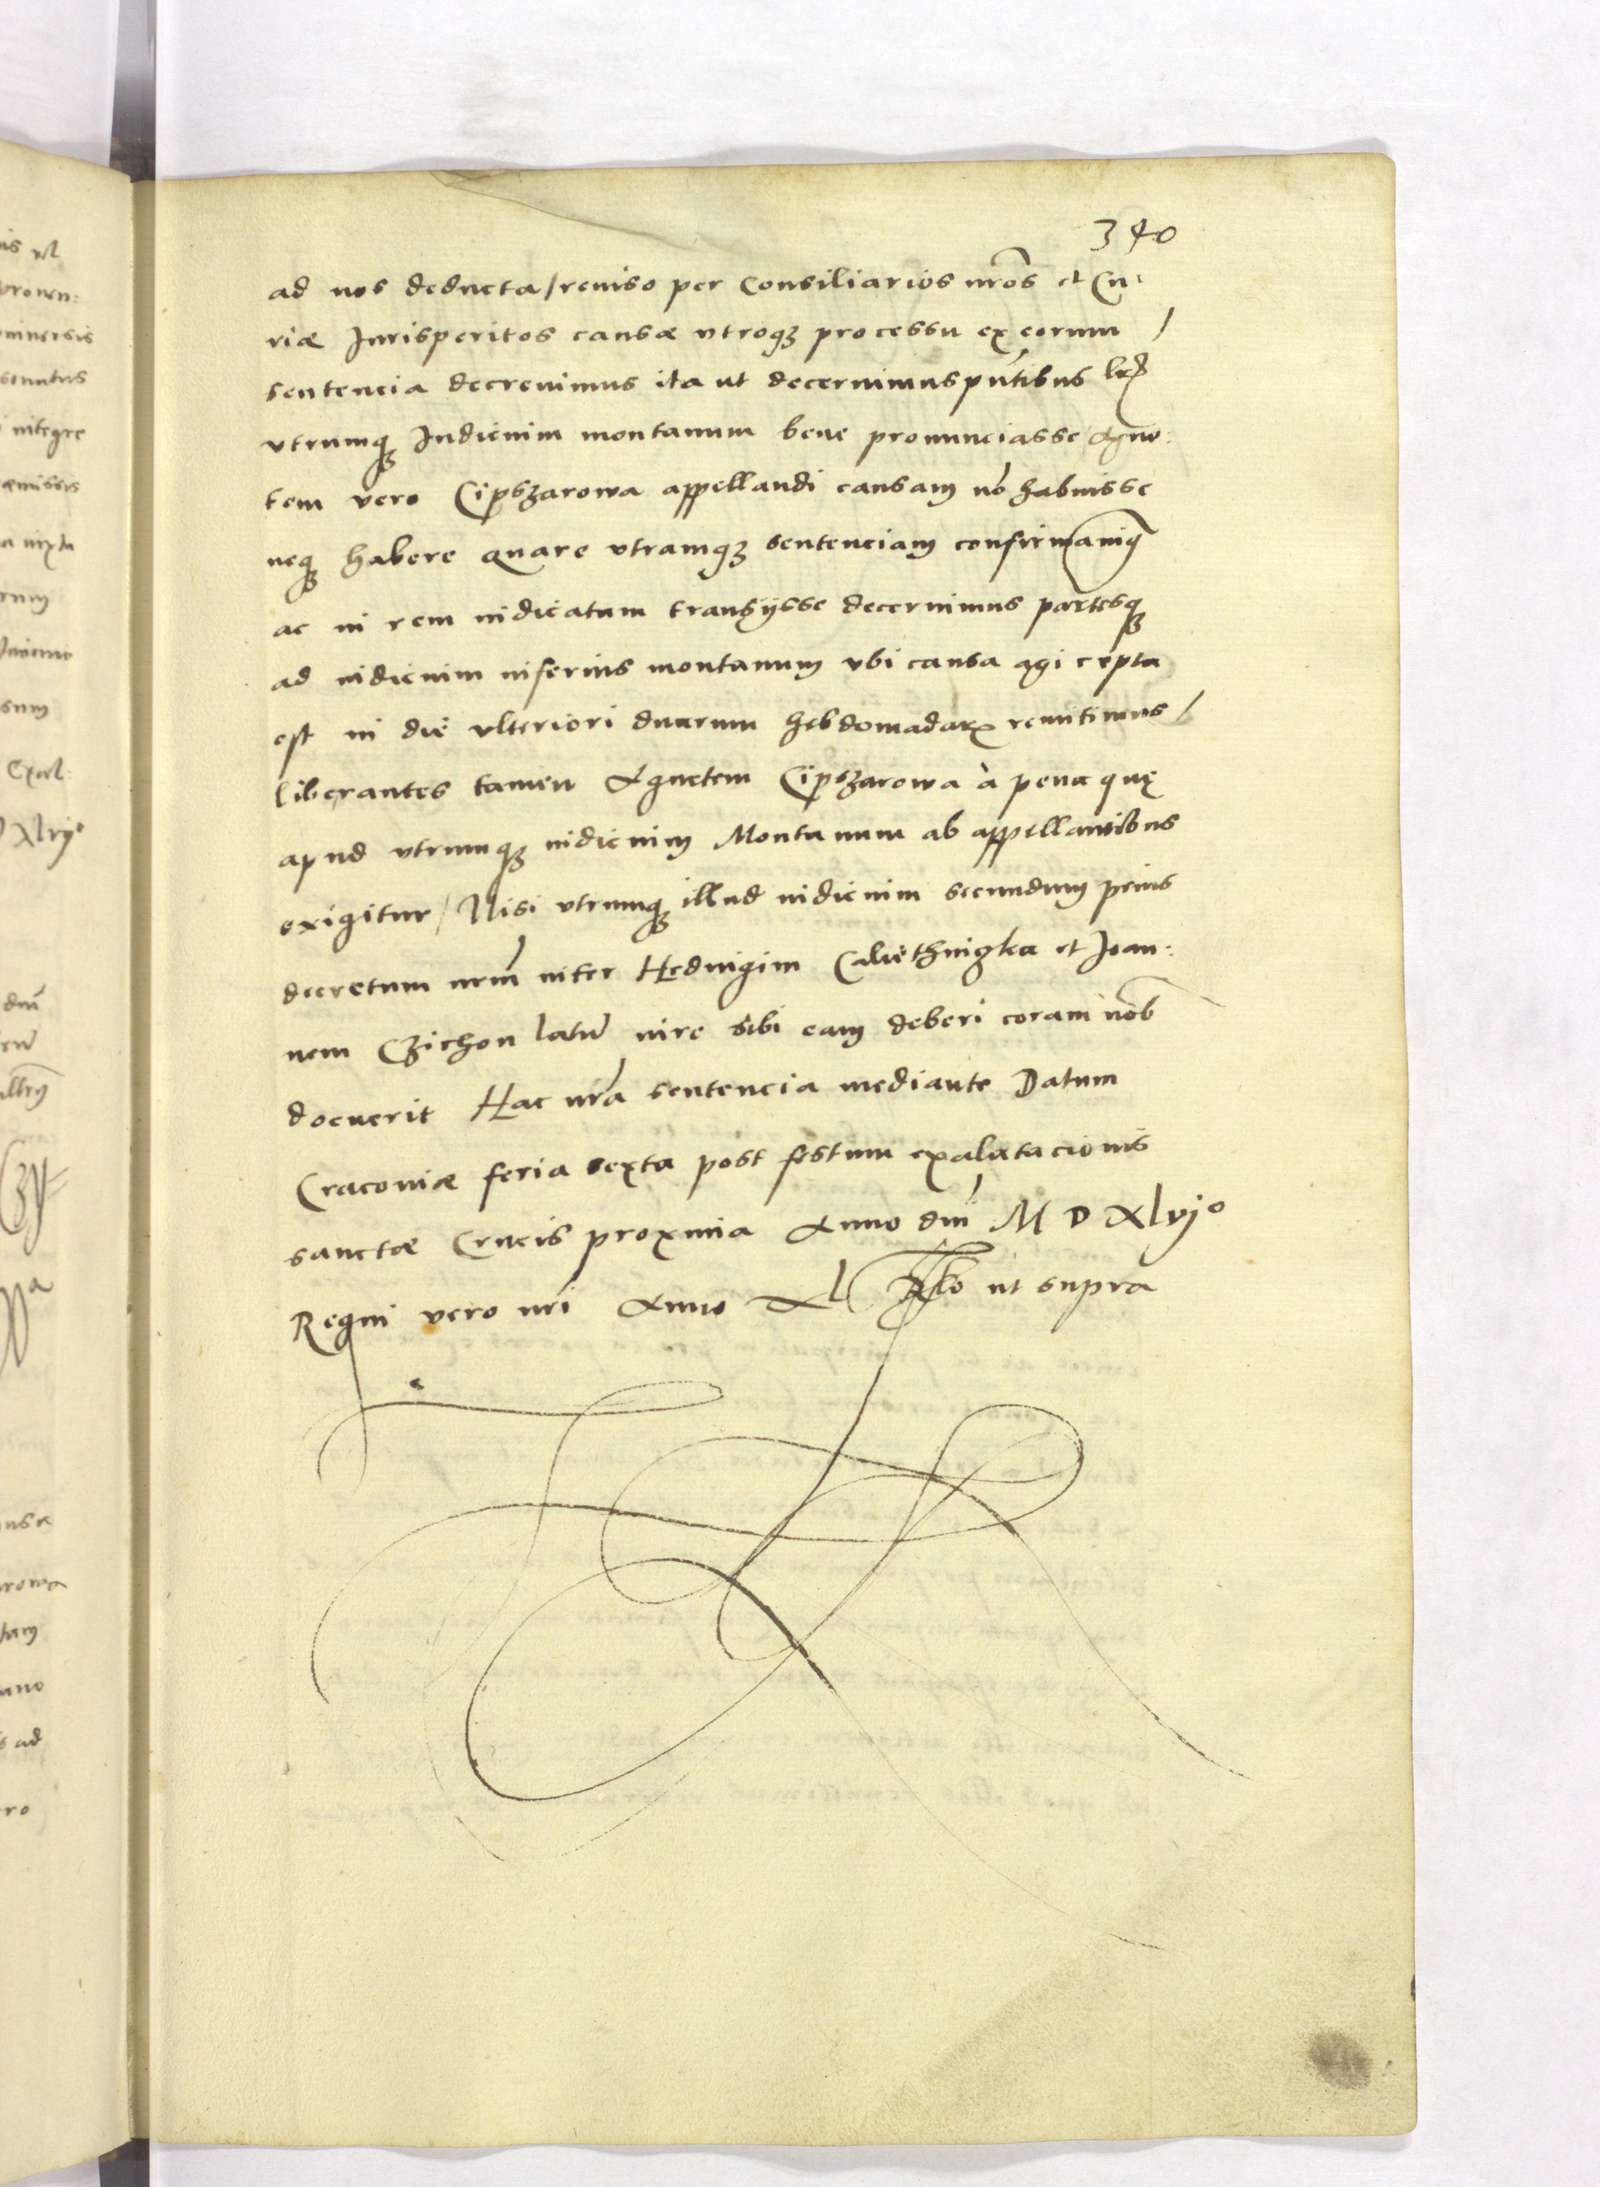 340
ad nos deducta / reviso per Consiliarios nr̄os et Cu:
riæ Jurisperitos causæ utroqꝫ processu ex eorum /
sentencia decrevimus ita ut decernimus pn̄tibus lr̄is
vtrumqꝫ Judicium montanum bene pronunciasse Agne:
tem vero Cipszarowa appellandi causam nō habuisse
neqꝫ habere Quare vtramqꝫ sentenciam confirmamꝰ
ac in rem iudicatum transÿsse decernimus partesqꝫ
ad iudicium inferius montanum vbi causa agi cępta
est in die vlteriori duarum hebdomadarꝝ remitimus /
liberantes tamen Agnetem Cipszarowa à pena quę
apud vtrumqꝫ iudicium Montanum ab appellantibus
exigitur / Nisi vtrumqꝫ illud iudicium secundum prius
decretum nr̄m inter Hedvigim et Joan:
nem Czichon latū iure sibi eam deberi coram nob̄
docuerit Hac nr̄a sentencia mediante Datum
Cracoviæ feria sexta post festum exalatacionis
sanctæ Crucis proxima Anno dn̄i M D Xlvjº
Regni vero nr̄i Anno Xl Rlo ut supra
is vl
universis
integre
præmissis
iuxta
sum
Exal:
Xlvjº
dn̄i
causæ
rowa
ad
ro